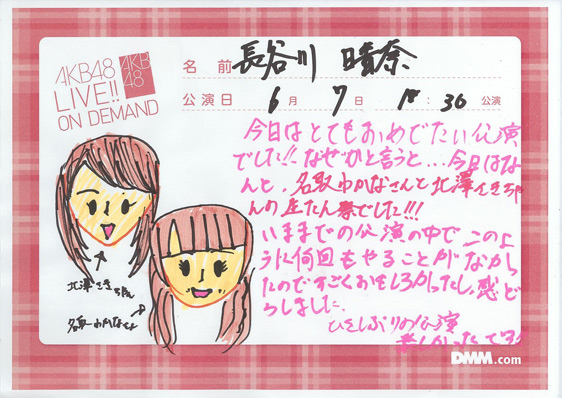 AKB48
LIVE!!
ON DEMAND
AKB
48
名 前 長谷川 晴奈
公演日 6月 7日 18:30 公演
今日はとてもおめでたい公演
でした!!なぜかと言うと...今日はな
んと、名取わかなさんと北澤さきちゃ
んの生たん祭でした!!!
いままでの公演の中でこのよ
うに何回もやることがなかっ
たのですごくおもしろかったし、感ど
うしました。
ひさしぶりの公演
楽しかったです
北澤さきちゃん
名取わかなさん
DMM.com